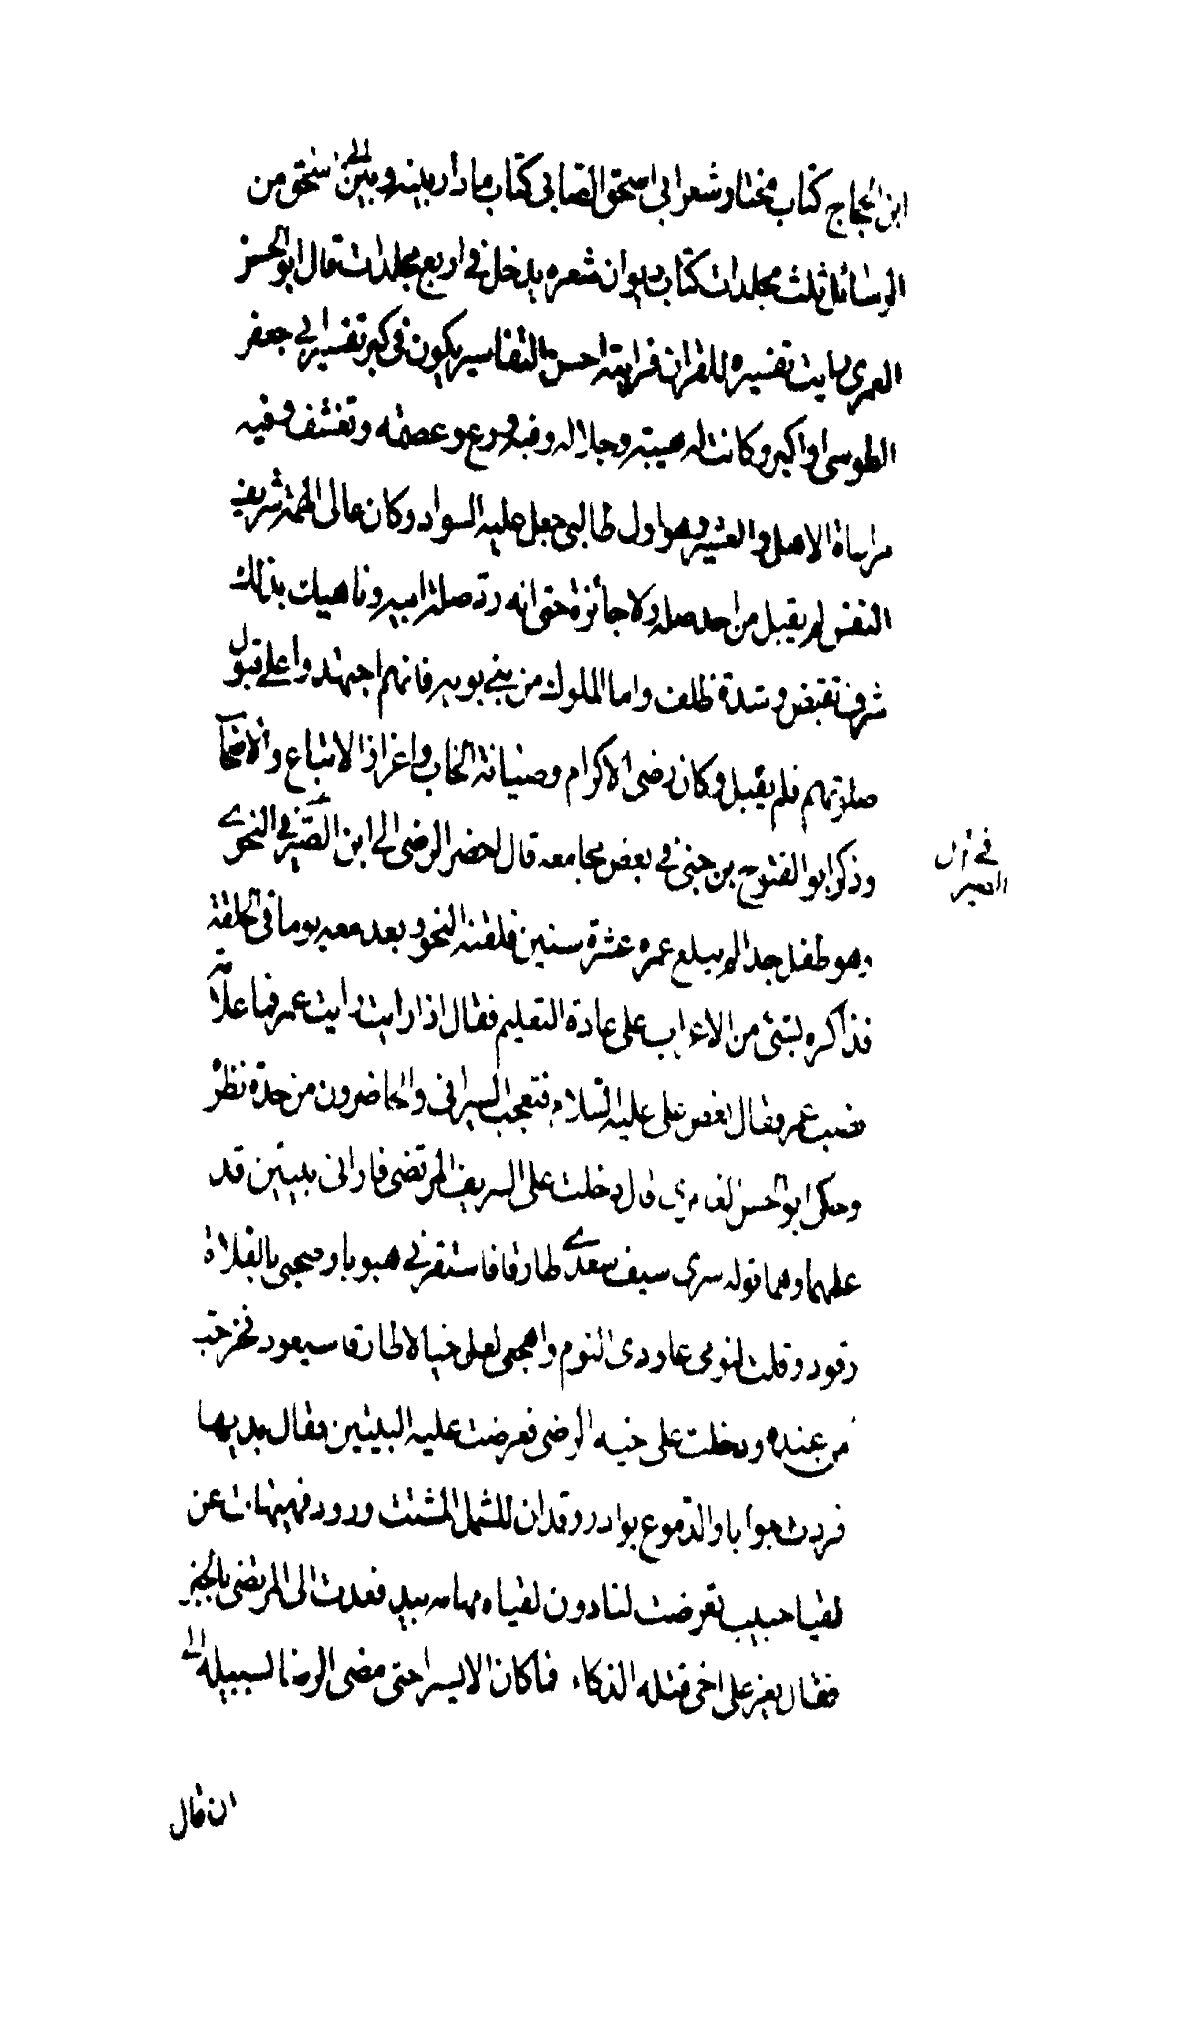 ابن الحجاج كتاب مختار شعر ابي اسحق الصابي كتاب ما دار بينه وبين ابي اسحق من
الرسائل ثلث مجلدات كتاب ديوان شعره يدخل في اربع مجلدات قال ابو الحسن
العمرى رايت تفسيره للقران فرايته احسن التفاسير يكون في كبر تفسير ابي جعفر
الطوسى او اكبر وكانت له هيبة وجلالة وفيه ورع وعصمة وتقشف وفيه
مراعاة الاهل والعشيرة وهو اول طالبي جعل عليه السواد وكان عالى الهمة شريف
النفس لم يقبل من احد صلة ولا جائزة حتى انه رد صلة ابيه وناهيك بذلك
شرف نفس وشدة ظلف واما الملوك من بني بويه فانهم اجتهدوا على قبول
صلوتهم فلم يقبل وكان رضى الاكرام وصيانة الجانب واعزاز الاتباع والاصحاب
وذكر ابو الفتوح بن جني في بعض مجامعه قال احضر الرضى الى ابن السيرافي النحوى
وهو طفل جدا لم يبلغ عمره عشرة سنين فلقنه النحو وبعد معه يوما في الحلقة
فذاكره بشئ من الاعراب على عادة التعليم فقال اذا رايت رايت عمر فما علامة
نصب عمر فقال بغض على عليه السلام فتعجب السيرافي والحاضرون من حدة نظره
وحكى ابو الحسن العمرى قال دخلت على الشريف المرتضى فارانى بيتين قد
عملهما وهما قوله سرى سيف سعدى طارقا فاستقرني هبوبا وصحبى بالفلاة
رقود وقلت لنومى عاودى النوم واهجعى لعل خيالا طارقا سيعود فخرجت
من عنده ودخلت على خيه الرضى فعرضت عليه البيتين فقال بديها
فردت جوابا والدموع بوادر وقد ان للشمل المشتت ورود فهيهات عن
لقيا حبيب تعرضت لنا دون لقياه مهامه بيد فعدت الى المرتضى بالخبر
فقال يعز على اخى قتله الذكاء فما كان الا يسيرا حتى مضى الرضا لسبيله الى
في اول
العمر
ان قال